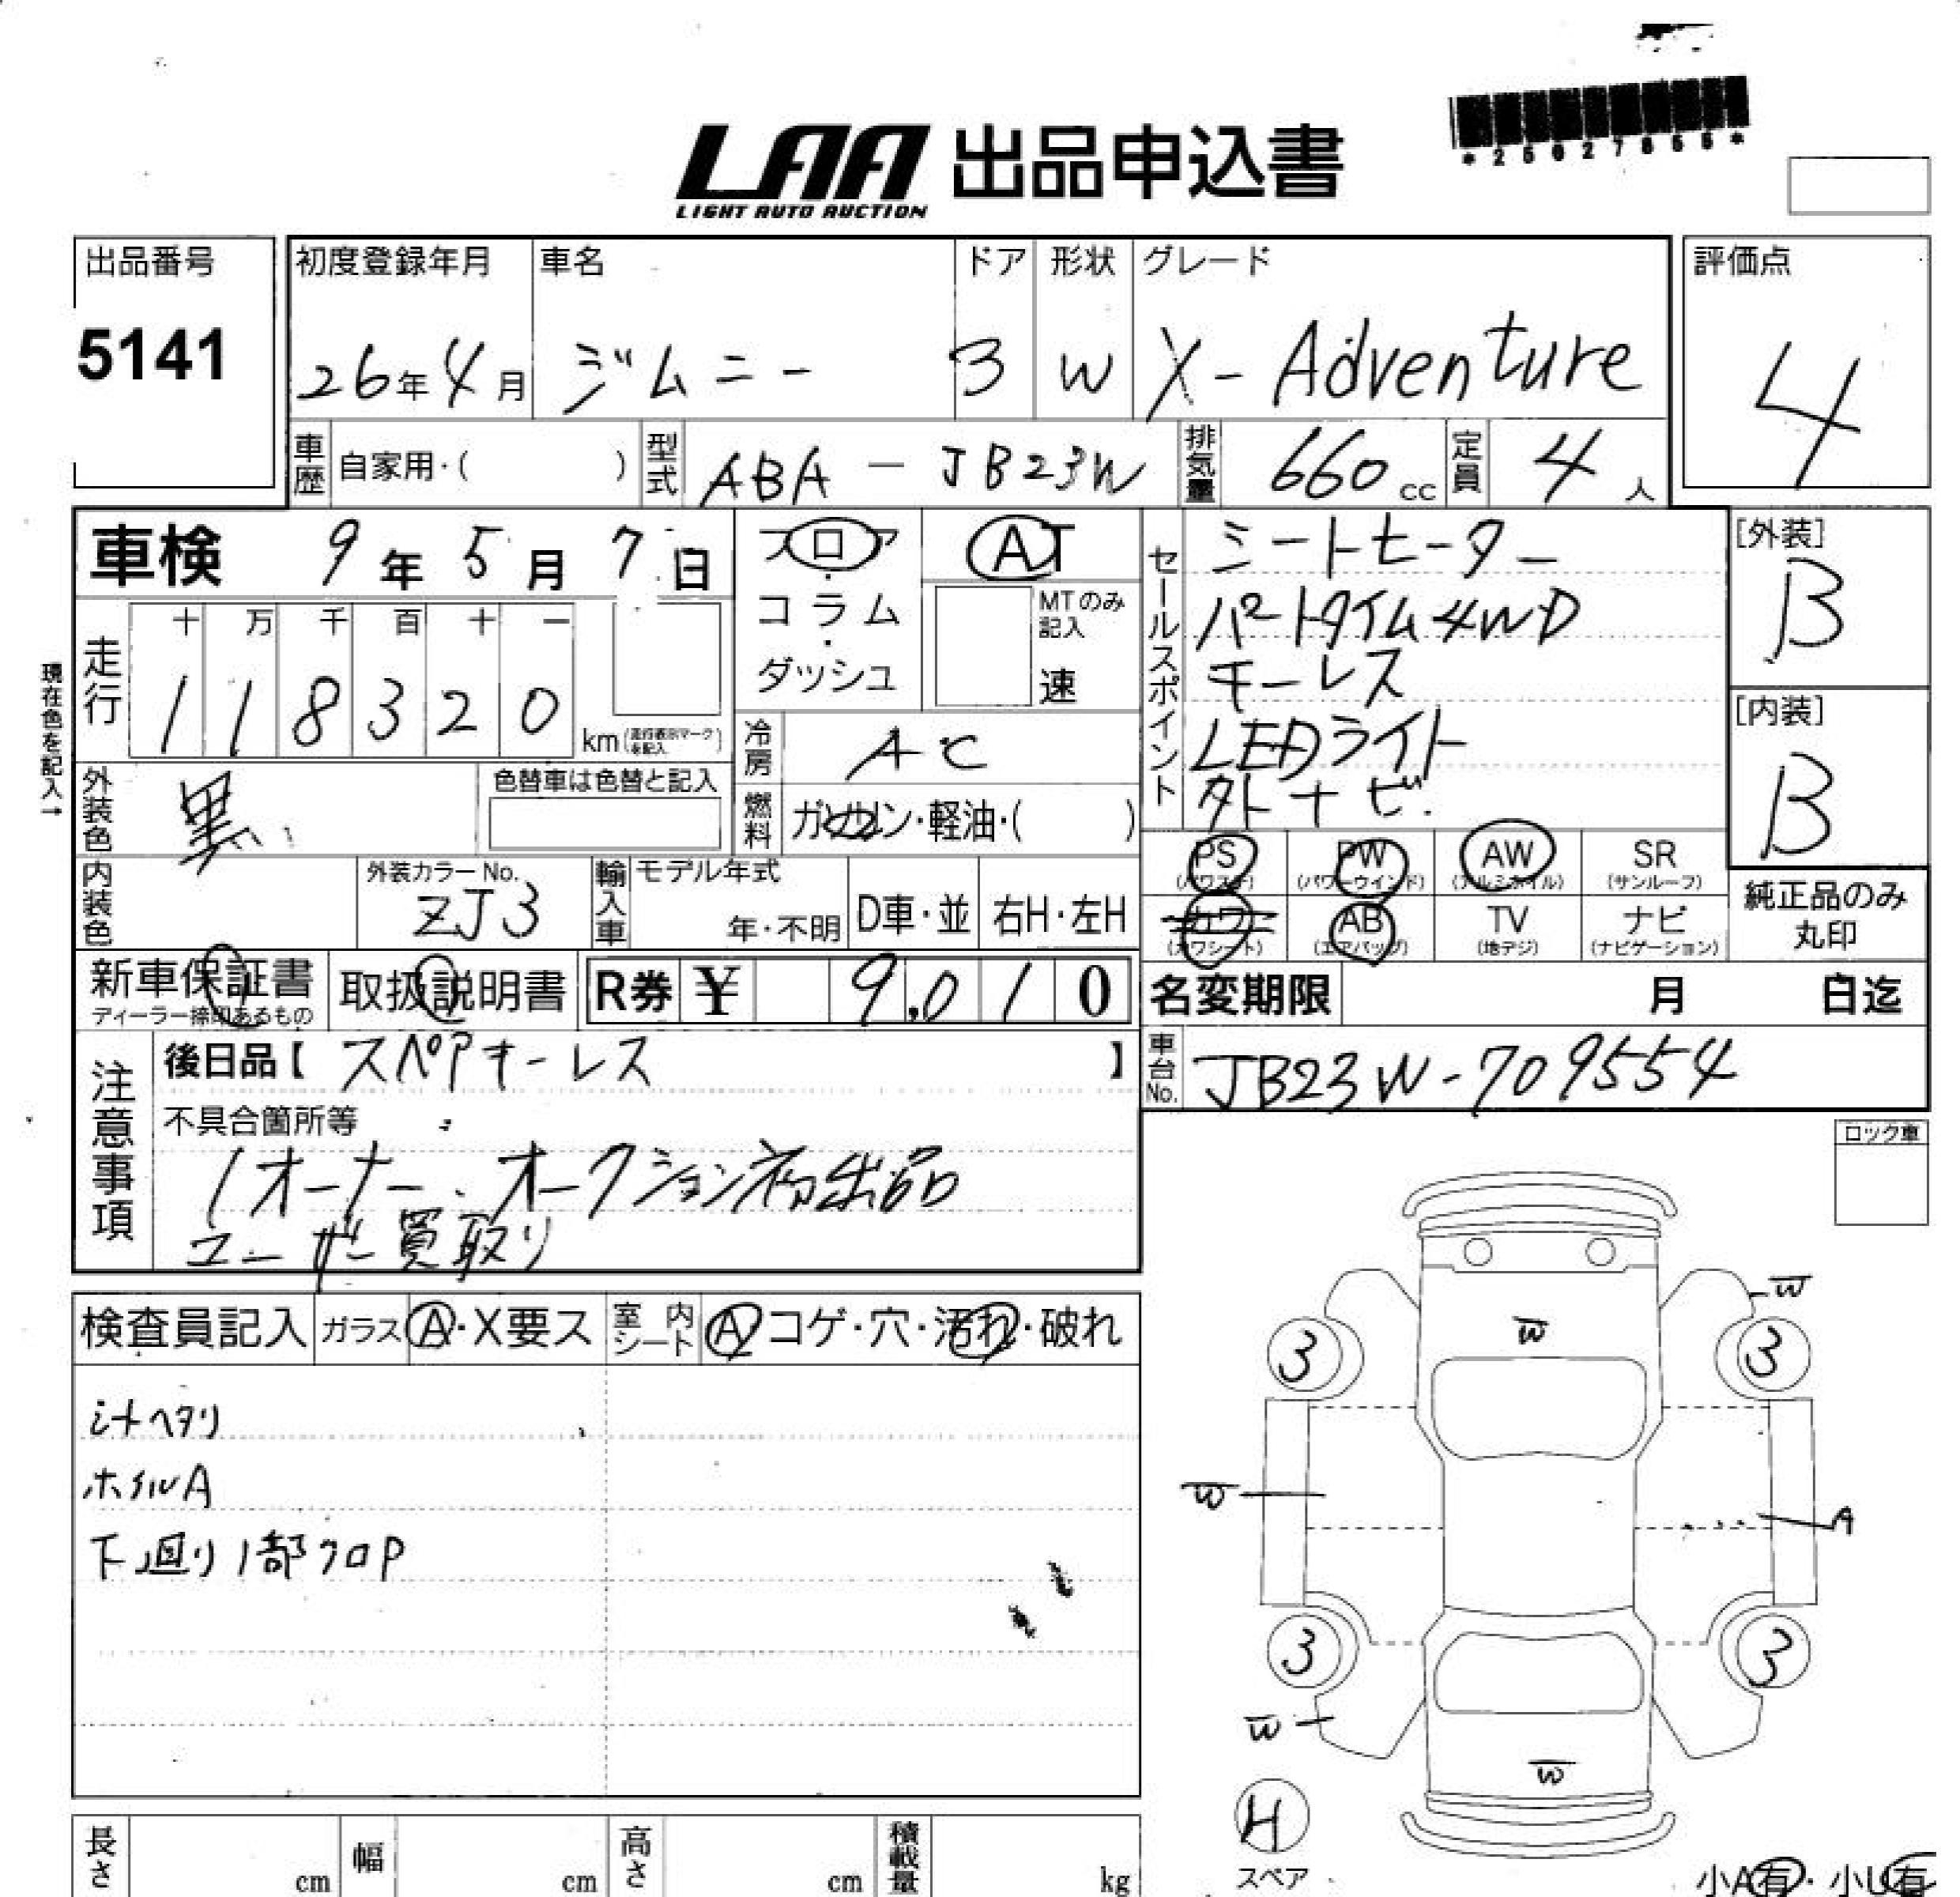 *25627855*
LAA 出品申込書
LIGHT AUTO AUCTION
出品番号
5141
初度登録年月 車名 ドア 形状 グレード 評価点
26年4月 ジムニー 3 W X-Adventure 4
車歴 自家用・( ) 型式 ABA-JB23W 排気量 660cc 定員 4人
車検 9年5月7日
フロア・コラム・ダッシュ
AT
MTのみ記入
速
セールスポイント
シートヒーター
パートタイム4WD
キーレス
LEDライト
外ナビ
[外装]
B
[内装]
B
現在色を記入→
走行 十 万 千 百 十 一
1 1 8 3 2 0 km(走行表示マークを記入)
冷房 AC
燃料 ガソリン・軽油・( )
外装色 黒 色替車は色替と記入
内装色 外装カラーNo. ZJ3
輸入車 モデル年式 年・不明 D車・並 右H・左H
PS (パワステ) PW (パワーウインド) AW (アルミホイル) SR (サンルーフ)
カワ (カワシート) AB (エアバッグ) TV (地デジ) ナビ (ナビゲーション)
純正品のみ丸印
新車保証書 ディーラー捺印あるもの
取扱説明書
R券 ¥ 9,010
名変期限 月 日迄
車台No. JB23W-709554
注意事項
後日品【 スペアキーレス 】
不具合箇所等
1オーナー.オークション初出品
ユーザー買取り
ロック車
検査員記入 ガラス A・X要ス 室内シート A コゲ・穴・汚れ・破れ
シートヘタリ
ホイルA
下廻り1部クロP
W
W
3 3
W
A
3 3
W
W
H
スペア
小A有・小U有
長さ cm 幅 cm 高さ cm 積載量 kg